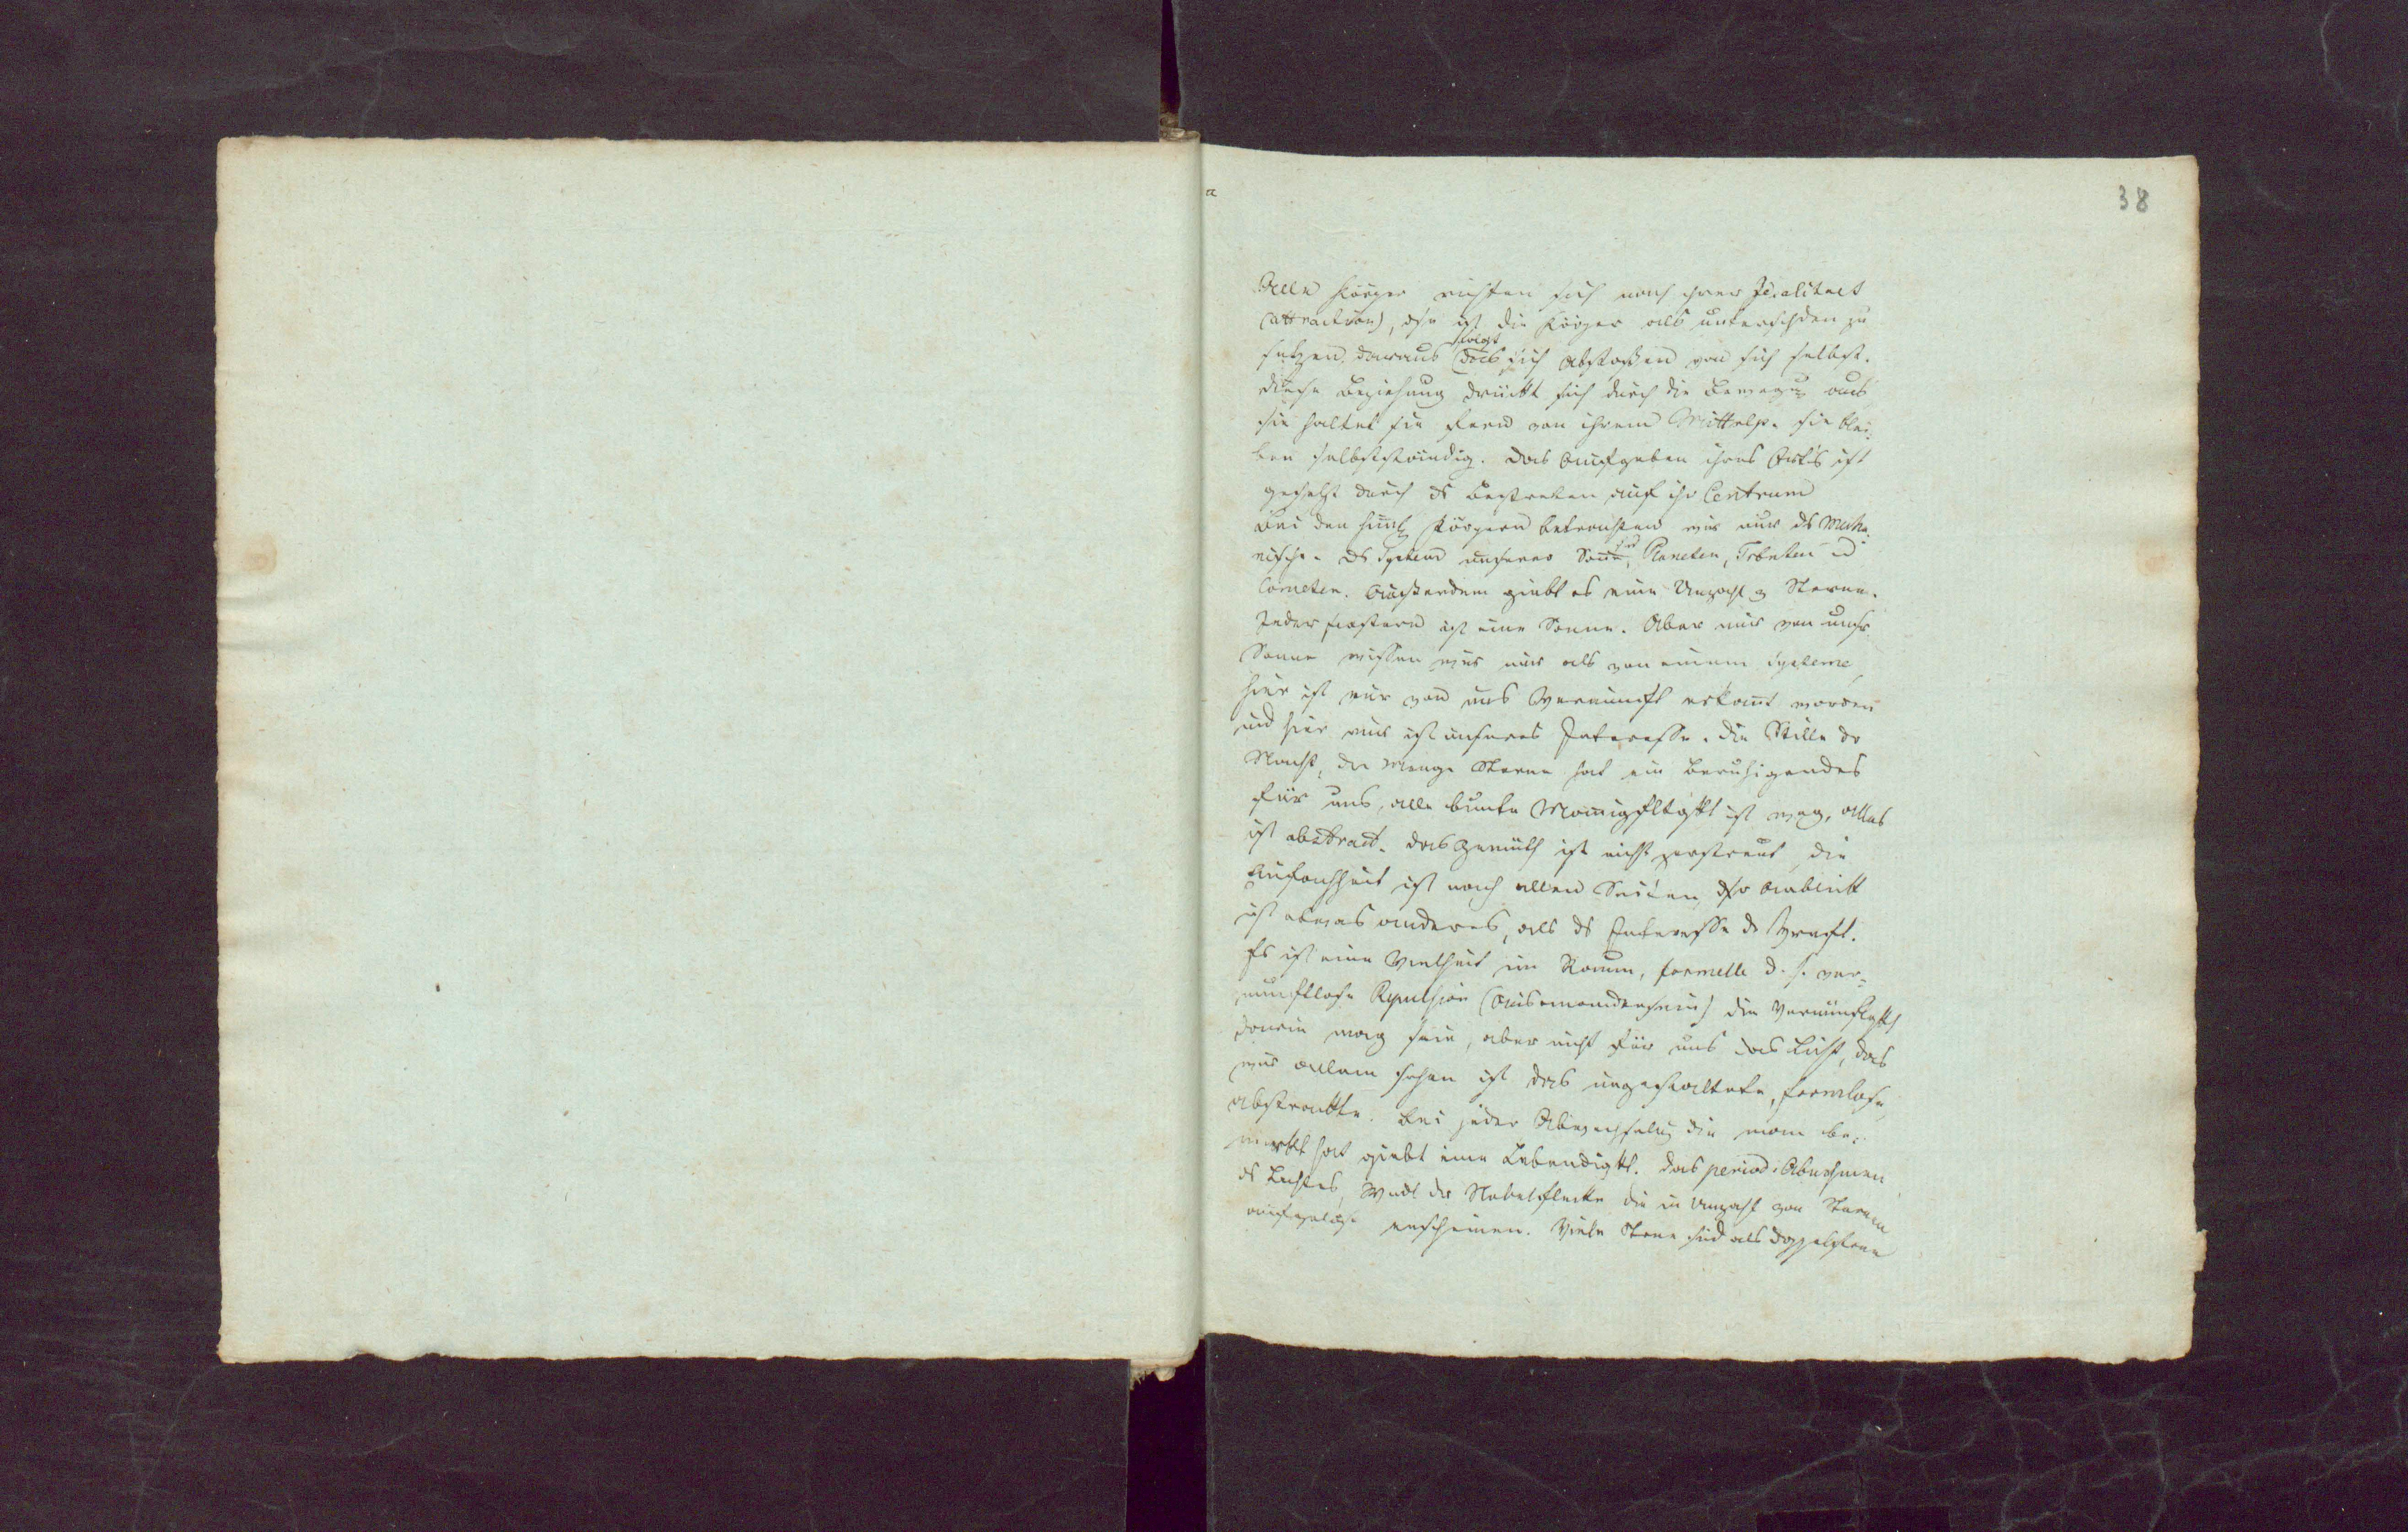 38
Alle Körper richten sich nach ihrer Idealitaet
(attraction), ohne ist die Körper als unterschieden zu
setzen daraus folgt das sich Abstoßen von sich selbst.
diese Beziehung drückt sich durch die Bewegung aus
sie haltet sie fern von ihrem Mittelp. sie blei-
ben selbstständig. Das Aufgeben ihres Orts ist
gesetzt durch ds Bestreben auf ihr Centrum
Bei den himl Körpern betrachten wir nur ds mecha
nische. Ds System unserer Sonne, sind Planeten, Trabanten ud
Cometen. Außerdem giebt es eine Unzahl v Sterne.
Jeder Fixstern ist eine Sonne. Aber nur von unsr
Sonne wissen wir nur als von einem systeme
hier ist nur von uns Vernunft erkannt worden
und hier nur ist unseres Interesse. Die Stille dr
Nacht, die Menge Sterne hat ein Beruhigendes
für uns, alle bunte Mannigfltgkt ist weg, alles
ist abstract. Das Gemüth ist nicht zerstreut, die
Einfachheit ist nach allen Seiten, dsr Anblick
ist etwas anderes, als ds Interesse dr Vernft.
Es ist eine Vielheit im Raum, formelle d. h. ver-
nunftlose Repulsion (Auseinandersein) die Vernünftgkt
darin mag sein, aber nicht für uns das Licht, das
wir allein sehen ist das ungestaltete, formlose
abstrakte. Bei jeder Abwechselung die man be-
merkt hat giebt eine Lebendigkt. Das period. Abnehmen
ds Lichtes, Wndl der Nebelflecke die in Unzahl von Sternen
aufgelöst erscheinen. Viele Sterne sind als Doppelsterne